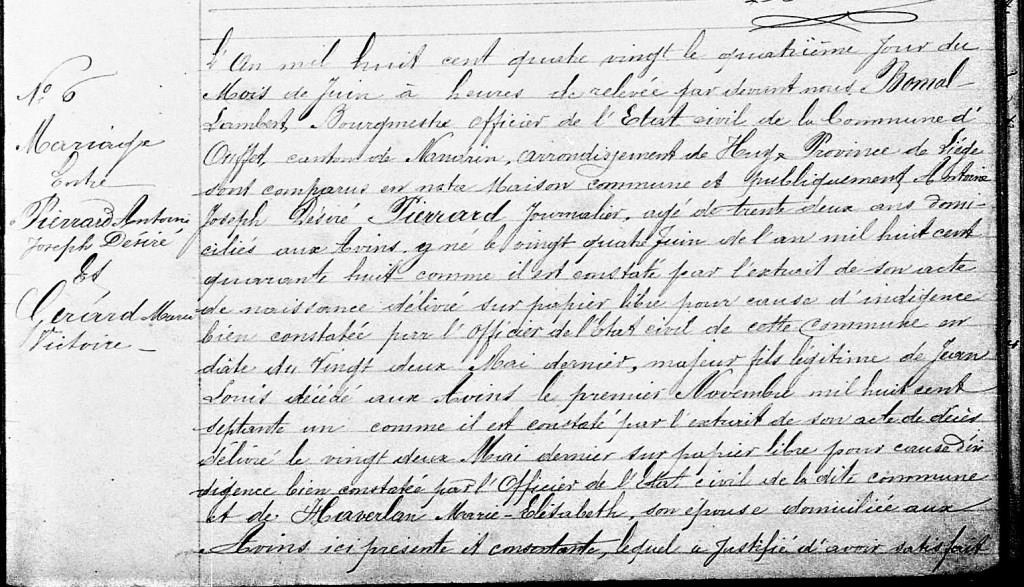 N° 6
Mariage
Entre
Piérrard Antoine
Joseph Désiré
Et
Gérard Marie
Victoire
L'An mil huit cent quatre vingt le quatrième jour du
Mois de Juin à heures de relevée par devant nous Bonal
Lambert, Bourgmestre officier de l'Etat civil de la Commune d'
Ouffet, canton de Nandrin, arrondissement de Huy, Province de Liége
sont comparus en notre Maison commune et publiquement, Antoine
Joseph Désiré Piérrard Journalier, agé de trente deux ans domi-
ciliés aux y né le vingt quatre Juin de l'an mil huit cent
quarante huit comme il est constaté par l'extrait de son acte
de naissance délivré sur papier libre pour cause d'indigence
bien constatée par l'Officier de l'Etat civil de cette commune en
date du Vingt deux Mai dernier, majeur, fils légitime de Jean
Louis décédé aux le premier Novembre mil huit cent
septante un comme il est constaté par l'extrait de son acte de décès
délivré le vingt deux Mai dernier sur papier libre pour cause d'in
digence bien constatée par l'Officier de l'Etat civil de la dite commune
et de Haverlan Marie-Elisabeth, son épouse domiciliée aux
ici présente et consentante, lequel a justifié d'avoir satisfait